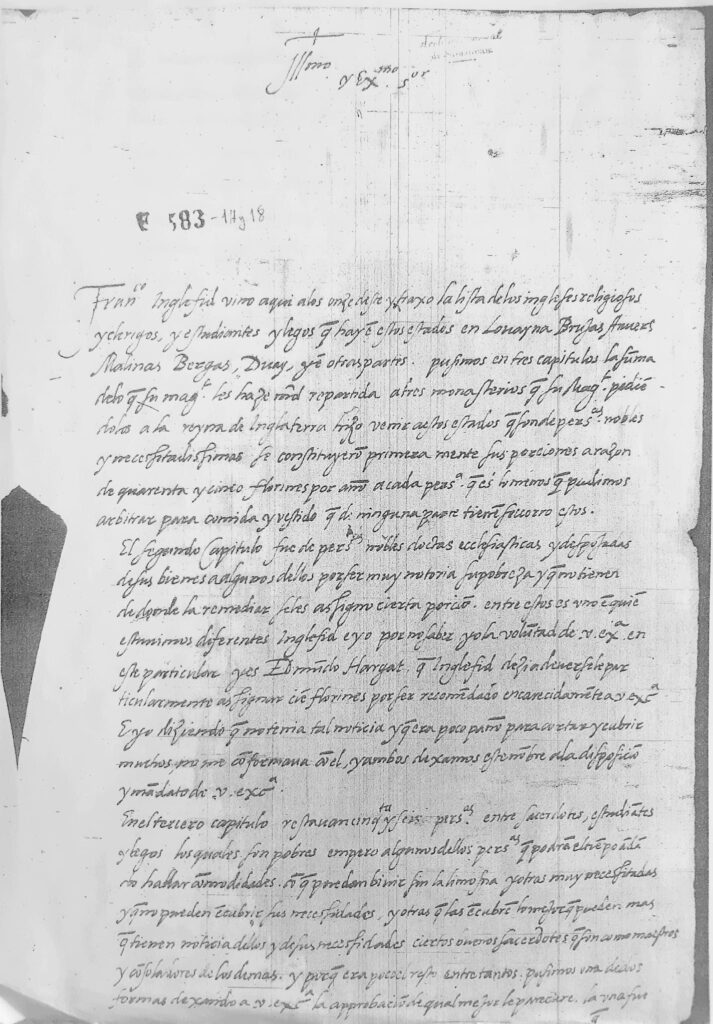 Illmo. y Exmo. Sor
E 583-17y18
Franco Inglefid vino aqui a los onze deste y traxo la lista de los ingleses religiosos
y clerigos, y estudiantes y legos q̃ hay ẽ estos estados en Lovayna Brujas Anvers
Malinas Bergas, Duay, y ẽ otras partes. pusimos en tres capitulos la sũma
de lo q̃ su mag.t les haze mrd repartida a tres monasterios q̃ su Mag.t pidiẽ-
dolos a la reyna de Inglaterra hizo venir a estos estados q̃ son de persas nobles
y necessitadissimas se constituyerõ primera mente sus porciones a razon
de quarenta y cinco florines por anno a cada persa. q̃ es lo menos q̃ pudimos
arbitrar para comida y vestido q̃ di ninguna parte tienen socorro estos.
El segondo Capitulo fue de persas nobles doctas ecclesiasticas y despojadas
de sus bienes a algunos dellos por ser muy notoria su pobreza y q̃ no tienen
de donde la remediar se les assigno cierta porciõ. entre estos es uno e quiẽ
estuvimos diferentes Inglefid e yo por no saber yo la volũtad de v. exa en
este particular y es Edmũdo Hargat. q̃ Inglefid dezia deversele par
ticularmente assignar ciẽ florines por ser recomẽdado encarecidamẽte a v. exca
E yo diziendo q̃ no tenia tal noticia y q̃ era poco paño para cortar y cubrir
muchos, no me cõformava cõ el, y ambos dexamos este nõbre a la disposiciõ
y mãdato de v. exca.
En el tercero capitulo restavan cinqta y seis persas entre sacerdotes, estudiãtes
y legos los quales son pobres empero algunos dellos persas q̃ podrã el tiẽpo andã
do hallar cõmodidades. cõ q̃ puedan bivir sin la limosna y otras muy necessitadas
y q̃ no pueden ẽcubrir sus necessidades, y otras q̃ las ẽcubrẽ lo mejor q̃ pueden. mas
q̃ tienen noticia dellos y de sus necessidades ciertos buenos sacerdotes q̃ son como maestros
y cõsoladores de los demas. y porq̃ era poco el resto entre tantos. pusimos una de dos
formas dexando a v. exca la approbaciõ de qual mejor le pareciere. la una fue
q̃